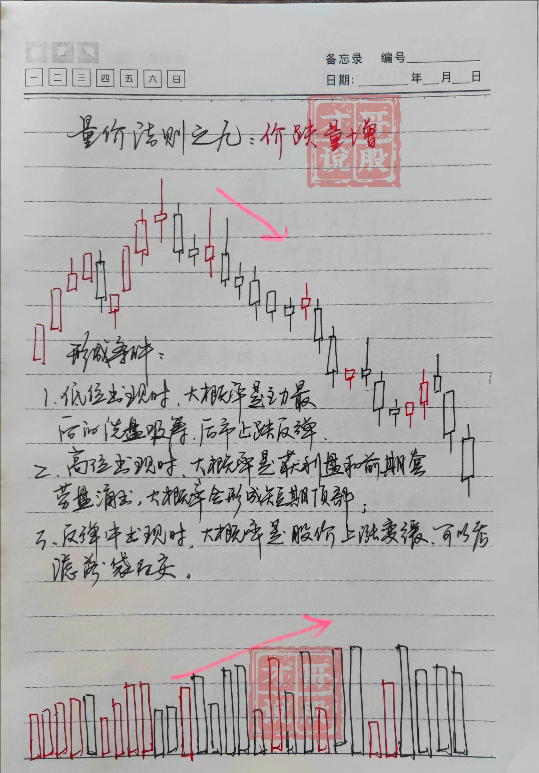 备忘录 编号
一 二 三 四 五 六 日
日期: 年 月 日
量价法则之九:价跌量增
形成条件:
1. 低位出现时,大概率是主力最
后的洗盘吸筹,后市止跌反弹.
2、高位出现时,大概率是获利盘和前期套
劳盘涌出,大概率会形成短期顶部;
3、反弹中出现时,大概率是股价上涨变缓、可以考
虑落袋为安。